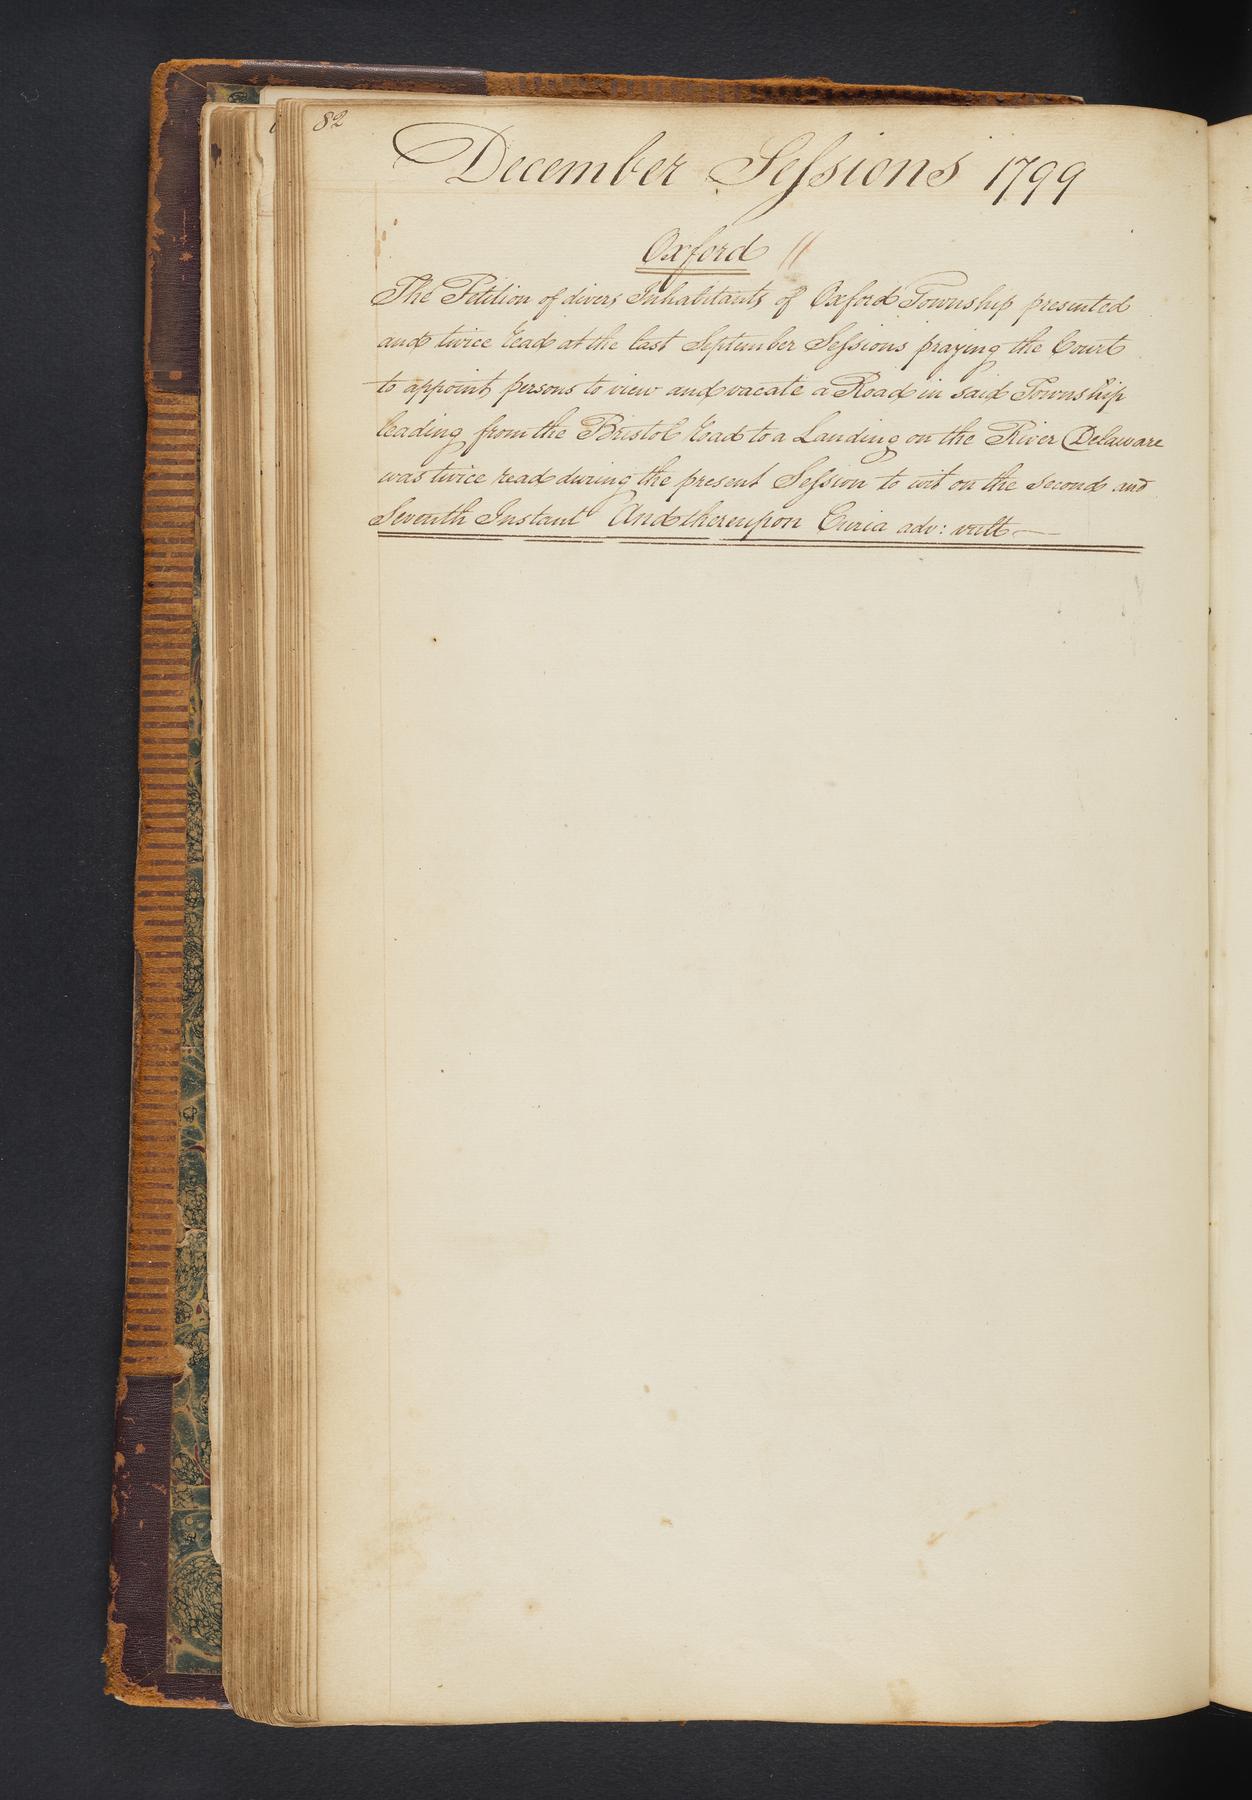 82
December Sessions 1799
Oxford //
The Petition of divers Inhabitants of Oxford Township presented
and twice read at the last September Sessions praying the Court
to appoint persons to view and vacate a Road in said Township
leading from the Bristol Road to a Landing on the River Delaware
was twice read during the present Session to wit on the second and
Seventh Instant And thereupon Curia adv: vult —